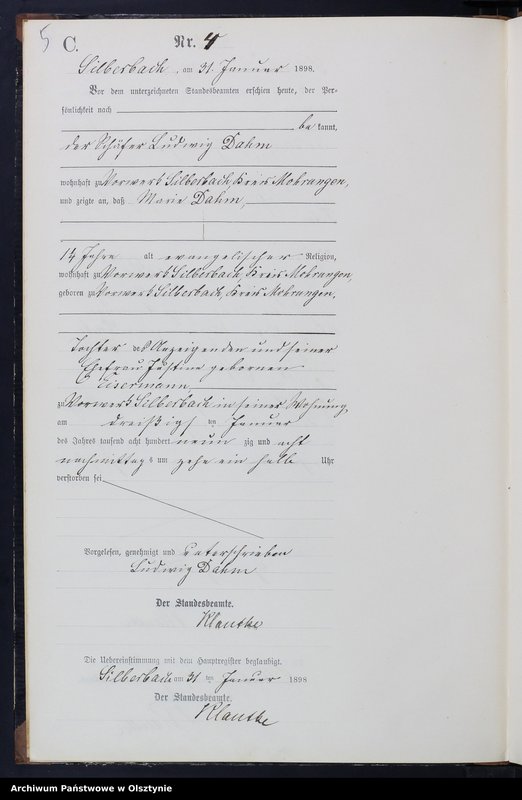 5 C. Nr. 4
Silberbach, am 31. Januar 1898.
Vor dem unterzeichneten Standesbeamten erschien heute, der Per-
sönlichkeit nach
be kannt,
der Schäfer Ludwig Dahm
wohnhaft zu Vorwerk Silberbach, Kreis Mohrungen,
und zeigte an, daß Marie Dahm,
alt evangelischer Religion,
wohnhaft zu Vorwerk Silberbach, Kreis Mohrungen,
geboren zu Vorwerk Silberbach, Kreis Mohrungen,
Tochter des Anzeigenden und seiner
Ehefrau Justine geborenen
Eisermann,
zu Vorwerk Silberbach in seiner Wohnung
am dreißigs ten Januar
des Jahres tausend acht hundert neun zig und acht
nachmittag s um zehn ein halb Uhr
verstorben sei.
Vorgelesen, genehmigt und unterschrieben
Ludwig Dahm
Der Standesbeamte.
Klautke
Die Uebereinstimmung mit dem Hauptregister beglaubigt.
Silberbach am 31 ten Januar 1898
Der Standesbeamte.
Klautke
Archiwum Państwowe w Olsztynie